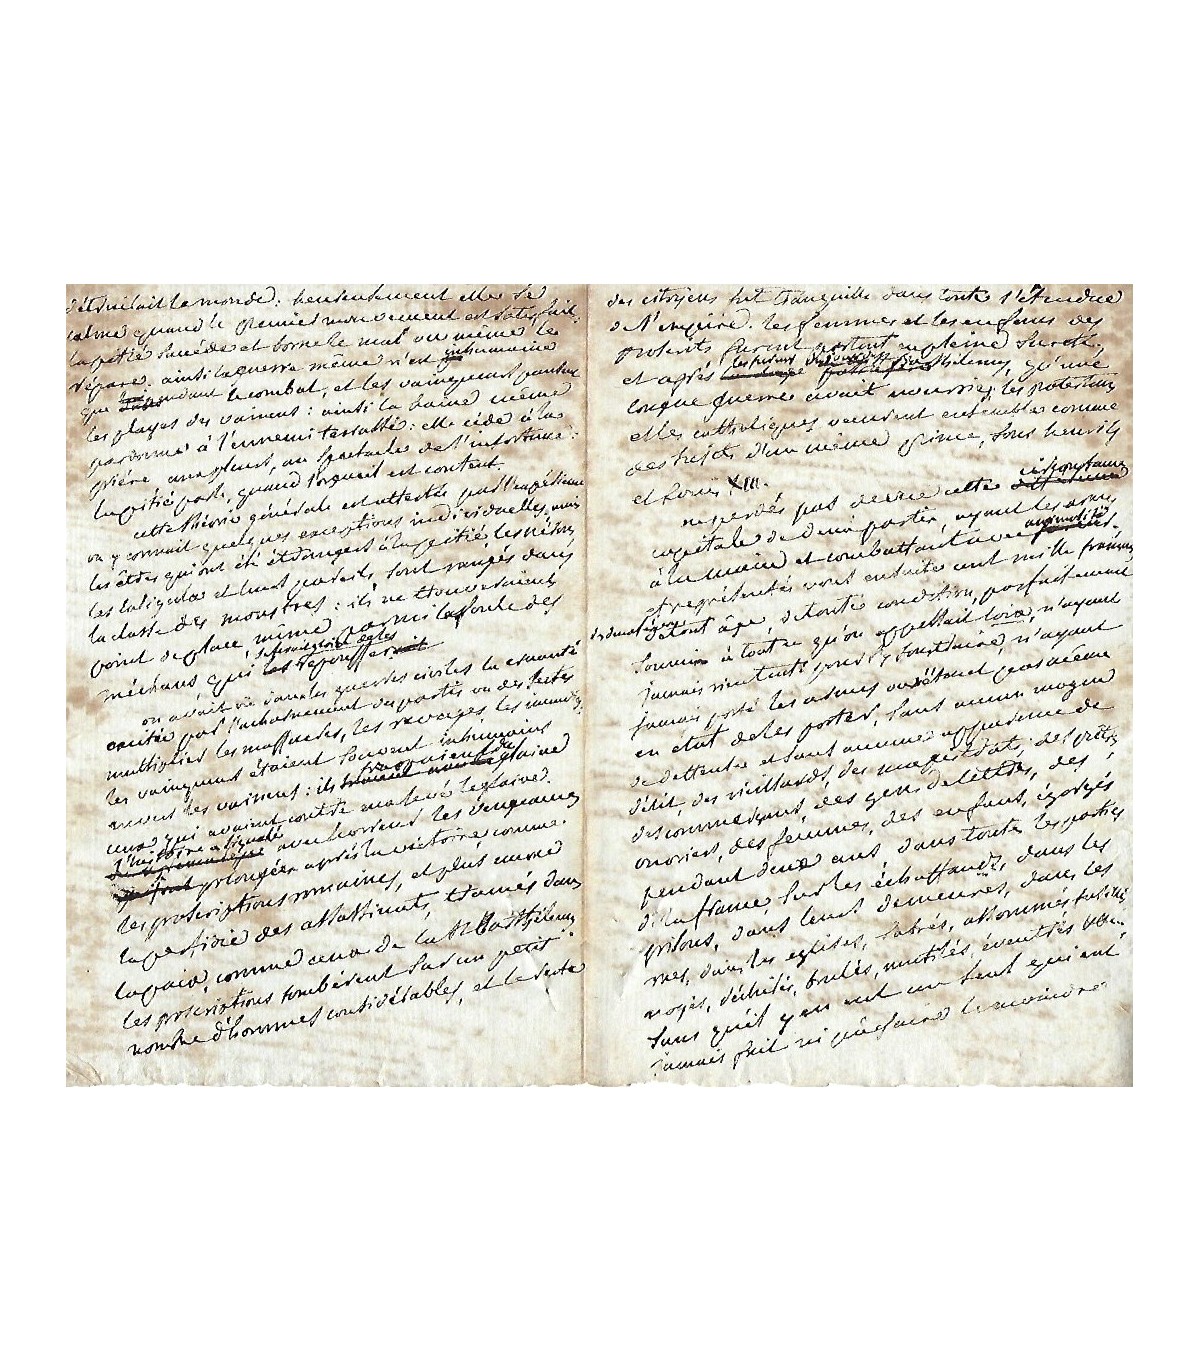 détruirait le monde: heureusement elle se
calme quand le premier mouvement est satisfait.
la pitié succède et borne le mal ou même le
répare. ainsi la guerre même n'est inhumaine
que pendant le combat, et les vainqueurs pansent
les playes des vaincus: ainsi la haine même
pardonne à l'ennemi terrassé: elle cède à la
prière, aux pleurs, au spectacle de l'infortune:
la pitié parle, quand l'orgueil est content.
cette théorie générale est attestée par l'expérience
on y connait quelques exceptions individuelles, mais
les êtres qui ont été étrangers à la pitié, les nérons
les caligula et leurs pareils, sont rangés dans
la classe des monstres: ils ne trouveraient
point de place, même parmi la foule des
méchans, qui
on avait vu dans les guerres civiles la cruauté
excitée par l'acharnement des partis ou des sectes
multiplier les massacres, les ravages, les incendies,
les vainqueurs étaient souvent inhumains
envers les vaincus: ils frappaient du glaive
ceux qui avaient contre eux levé le glaive.
l'histoire a signalé
avec horreur les vengeances
prolongées après la victoire comme
les proscriptions romaines, et plus encore
la perfidie des assassinats, tramés dans
la paix, comme ceux de la St Barthélemy
les proscriptions tombèrent sur un petit
nombre d'hommes considérables, et le reste
des citoyens fut tranquille dans toute l'étendue
de l'empire. les femmes et les enfans des
proscrits furent partout en pleine sureté.
et après les fureurs de la St Barthélemy, qu'une
longue guerre avait nourries, les protestans
et les catholiques vécurent ensemble comme
des sujets d'un même prince, sous henri IV
et Louis XIII.
ne perdés pas de vue cette
capitale de deux partis, ayant les armes
à la main et combattant avec animosité
et représentés vous ensuite cent mille français
de tout âge, de toute condition, parfaitement
soumis à tout ce qu'on appellait loix, n'ayant
jamais rien tenté pour s'y soustraire, n'ayant
jamais porté les armes ou n'étant pas même
en état de les porter, sans aucun moyen
de défense et sans aucune apparence de
délit, des vieillards, des magistrats, des prêtres
des commerçans, des gens de lettres, des
ouvriers, des femmes, des enfans, égorgés
pendant deux ans dans toutes les parties
de la france sur les échaffauds, dans les
prisons, dans leurs demeures, dans les
rues, dans les eglises, sabrés, assommés, fusillés
noyés, déchirés, brulés, mutilés, éventrés
sans qu'il y en eut un seul qui eut
jamais fait ni pu faire le moindre